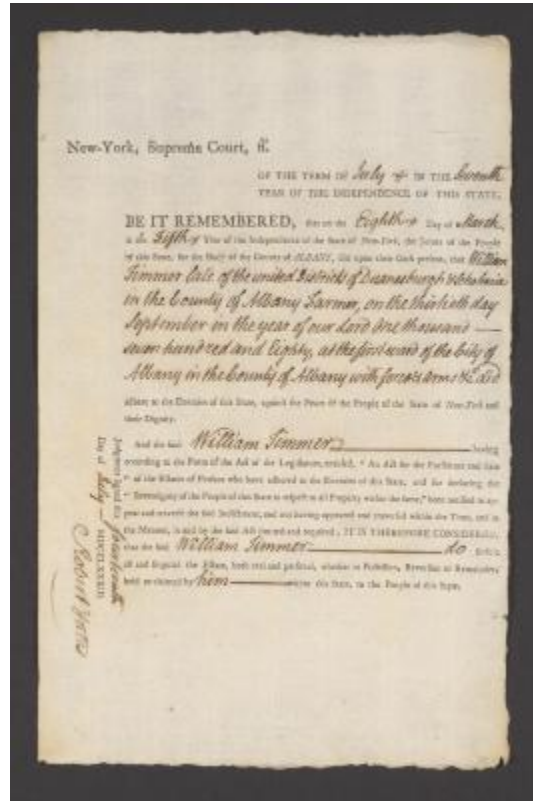 New-York, Supreme Court, ss.
OF THE TERM OF July IN THE Seventh
YEAR OF THE INDEPENDENCE OF THIS STATE.
BE IT REMEMBERED, that on the Eighth Day of March
in the Fifth Year of the Independence of the State of New-York, the Jurors of the People
of this State, for the Body of the County of ALBANY, did upon their Oath present, that William
Timmer late of the united Districts of Duanesburgh & Schoharie
in the County of Albany Farmer, on the thirtieth day
September in the year of our Lord One thousand
seven hundred and Eighty, at the first ward of the City of
Albany in the County of Albany with force & arms &c. did
adhere to the Enemies of this State, against the Peace of the People of the State of New-York and
their Dignity.
And the said William Timmer having
according to the Form of the Act of the Legislature, entitled, " An Act for the Forfeiture and Sale
" of the Estates of Persons who have adhered to the Enemies of this State, and for declaring the
" Sovereignty of the People of this State in respect to all Property within the same," been notified to appear
and traverse the said Indictment, and not having appeared and traversed within the Time, and in
the Manner, in and by the said Act and required, IT IS THEREFORE CONSIDERED,
that the said William Timmer do forfeit
all and singular the Estate, both real and personal, whether in Possession, Reversion or Remainder,
held or claimed by him within this State, to the People of this State.
Judgment signed this fourteenth
Day of July MDCCLXXXIII
Robert Yates